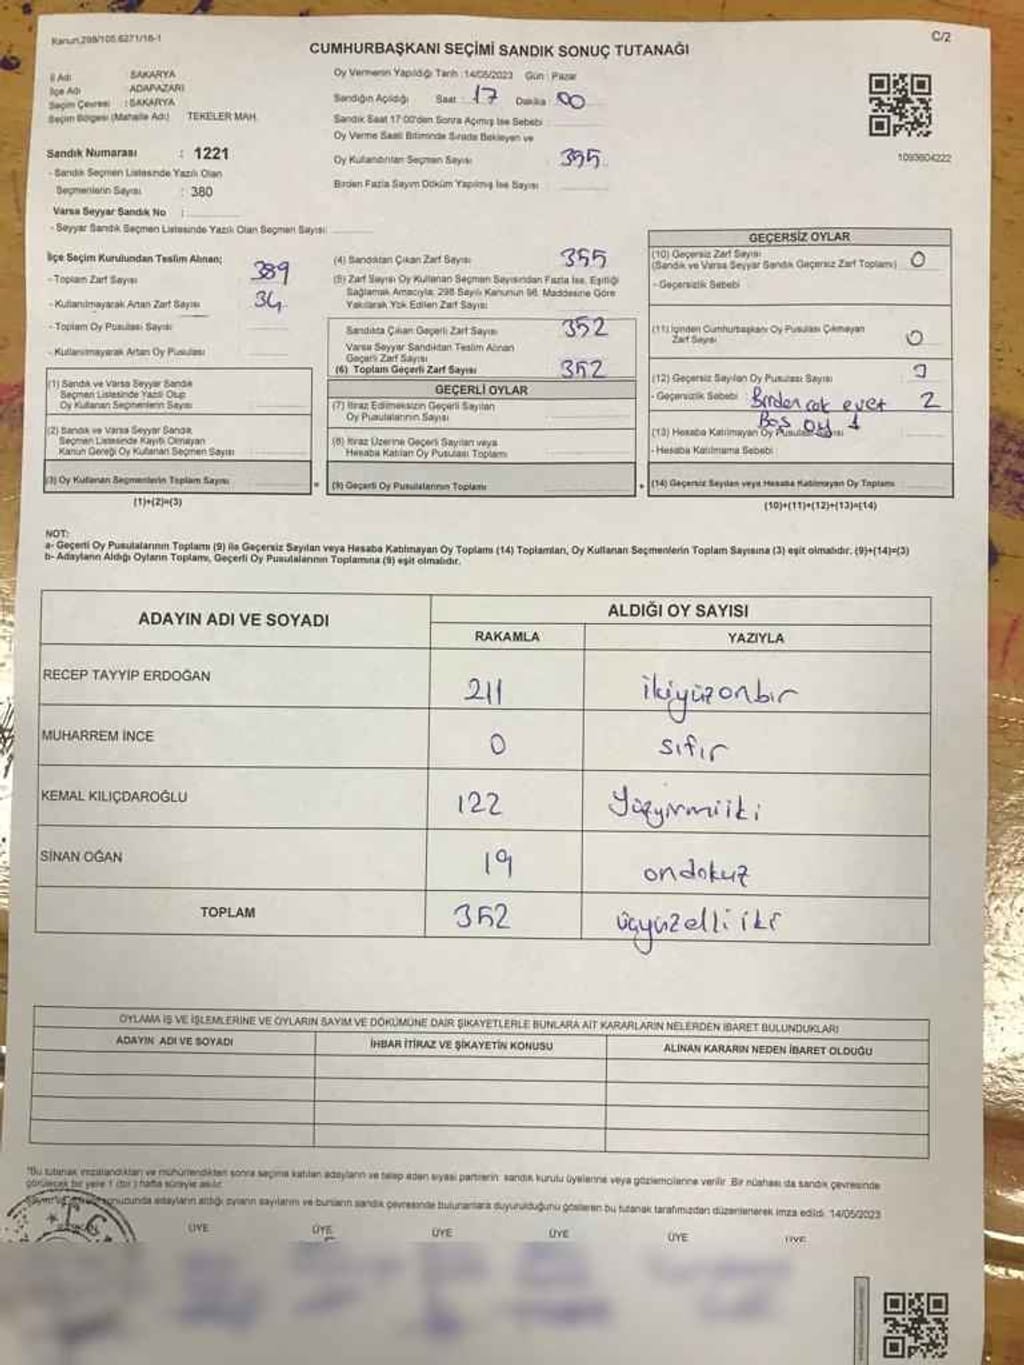 Kanun.298/105.6271/16-1
C/2
CUMHURBAŞKANI SEÇİMİ SANDIK SONUÇ TUTANAĞI
İl Adı : SAKARYA
İlçe Adı : ADAPAZARI
Seçim Çevresi : SAKARYA
Seçim Bölgesi (Mahalle Adı) TEKELER MAH.
Sandık Numarası : 1221
- Sandık Seçmen Listesinde Yazılı Olan
Seçmenlerin Sayısı : 380
Varsa Seyyar Sandık No :
- Seyyar Sandık Seçmen Listesinde Yazılı Olan Seçmen Sayısı:
Oy Vermenin Yapıldığı Tarih :14/05/2023 Gün : Pazar
Sandığın Açıldığı Saat : 17 Dakika : 00
Sandık Saat 17:00'den Sonra Açımış İse Sebebi :
Oy Verme Saati Bitiminde Sırada Bekleyen ve
Oy Kullandırılan Seçmen Sayısı : 355
Birden Fazla Sayım Döküm Yapılmış İse Sayısı :
1093604222
İlçe Seçim Kurulundan Teslim Alınan;
- Toplam Zarf Sayısı : 389
- Kullanılmayarak Artan Zarf Sayısı : 34
- Toplam Oy Pusulası Sayısı :
- Kullanılmayarak Artan Oy Pusulası :
(1) Sandık ve Varsa Seyyar Sandık
Seçmen Listesinde Yazılı Olup
Oy Kullanan Seçmenlerin Sayısı :
(2) Sandık ve Varsa Seyyar Sandık
Seçmen Listesinde Kayıtlı Olmayan
Kanun Gereği Oy Kullanan Seçmen Sayısı :
(3) Oy Kullanan Seçmenlerin Toplam Sayısı :
(1)+(2)=(3)
(4) Sandıktan Çıkan Zarf Sayısı : 355
(5) Zarf Sayısı Oy Kullanan Seçmen Sayısından Fazla İse, Eşitliği
Sağlamak Amacıyla; 298 Sayılı Kanunun 98. Maddesine Göre
Yakılarak Yok Edilen Zarf Sayısı :
Sandıkta Çıkan Geçerli Zarf Sayısı : 352
Varsa Seyyar Sandıktan Teslim Alınan
Geçerli Zarf Sayısı :
(6) Toplam Geçerli Zarf Sayısı : 352
GEÇERLİ OYLAR
(7) İtiraz Edilmeksizin Geçerli Sayılan
Oy Pusulalarının Sayısı :
(8) İtiraz Üzerine Geçerli Sayılan veya
Hesaba Katılan Oy Pusulası Toplamı :
(9) Geçerli Oy Pusulalarının Toplamı :
GEÇERSİZ OYLAR
(10) Geçersiz Zarf Sayısı
(Sandık ve Varsa Seyyar Sandık Geçersiz Zarf Toplamı) : 0
- Geçersizlik Sebebi :
(11) İçinden Cumhurbaşkanı Oy Pusulası Çıkmayan
Zarf Sayısı : 0
(12) Geçersiz Sayılan Oy Pusulası Sayısı :
- Geçersizlik Sebebi : Birden çok evet 2
Boş oy 1
(13) Hesaba Katılmayan Oy Pusulası Sayısı
- Hesaba Katılmama Sebebi :
(14) Geçersiz Sayılan veya Hesaba Katılmayan Oy Toplamı
(10)+(11)+(12)+(13)=(14)
NOT:
a- Geçerli Oy Pusulalarının Toplamı (9) ile Geçersiz Sayılan veya Hesaba Katılmayan Oy Toplamı (14) Toplamları, Oy Kullanan Seçmenlerin Toplam Sayısına (3) eşit olmalıdır. (9)+(14)=(3)
b- Adayların Aldığı Oyların Toplamı, Geçerli Oy Pusulalarının Toplamına (9) eşit olmalıdır.
ADAYIN ADI VE SOYADI
ALDIĞI OY SAYISI
RAKAMLA YAZIYLA
RECEP TAYYİP ERDOĞAN 211 ikiyüzonbir
MUHARREM İNCE 0 sıfır
KEMAL KILIÇDAROĞLU 122 Yüzyirmiiki
SİNAN OĞAN 19 ondokuz
TOPLAM 352 üçyüzelliiki
OYLAMA İŞ VE İŞLEMLERİNE VE OYLARIN SAYIM VE DÖKÜMÜNE DAİR ŞİKAYETLERLE BUNLARA AİT KARARLARIN NELERDEN İBARET BULUNDUKLARI
ADAYIN ADI VE SOYADI İHBAR İTİRAZ VE ŞİKAYETİN KONUSU ALINAN KARARIN NEDEN İBARET OLDUĞU
*Bu tutanak imzalandıktan ve mühürlendikten sonra seçime katılan adayların ve talep eden siyasi partilerin sandık kurulu üyelerine veya gözlemcilerine verilir. Bir nüshası da sandık çevresinde
görülecek bir yere 1 (bir) hafta süreyle asılır.
sonucunda adayların aldığı oyların sayılarını ve bunların sandık çevresinde bulunanlara duyurulduğunu gösteren bu tutanak tarafımızdan düzenlenerek imza edildi. 14/05/2023
ÜYE ÜYE ÜYE ÜYE ÜYE ÜYE
T.C.